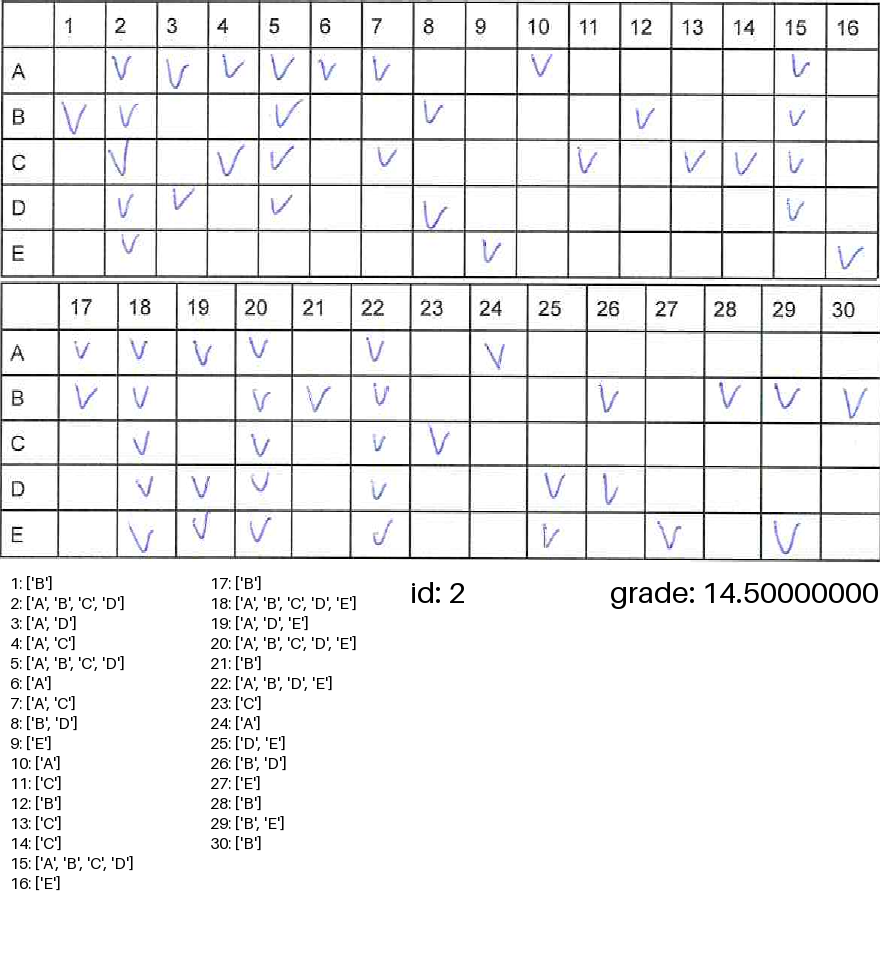 1 2 3 4 5 6 7 8 9 10 11 12 13 14 15 16
A V V V V V V V V
B V V V V V V
C V V V V V V V V
D V V V V V
E V V V
17 18 19 20 21 22 23 24 25 26 27 28 29 30
A V V V V V V
B V V V V V V V V V
C V V V V
D V V V V V V
E V V V V V V V
1: ['B']
2: ['A', 'B', 'C', 'D']
3: ['A', 'D']
4: ['A', 'C']
5: ['A', 'B', 'C', 'D']
6: ['A']
7: ['A', 'C']
8: ['B', 'D']
9: ['E']
10: ['A']
11: ['C']
12: ['B']
13: ['C']
14: ['C']
15: ['A', 'B', 'C', 'D']
16: ['E']
17: ['B']
18: ['A', 'B', 'C', 'D', 'E']
19: ['A', 'D', 'E']
20: ['A', 'B', 'C', 'D', 'E']
21: ['B']
22: ['A', 'B', 'D', 'E']
23: ['C']
24: ['A']
25: ['D', 'E']
26: ['B', 'D']
27: ['E']
28: ['B']
29: ['B', 'E']
30: ['B']
id: 2
grade: 14.50000000